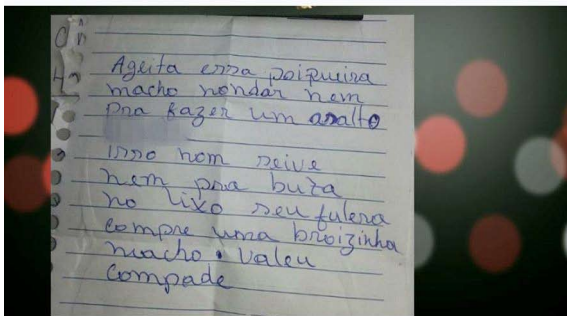 Ageita essa poiqueira
macho nondar nem
pra fazer um asalto
isso nom seive
nem pra buta
no lixo seu fulera
compre uma broizinha
macho. Valeu
Compade